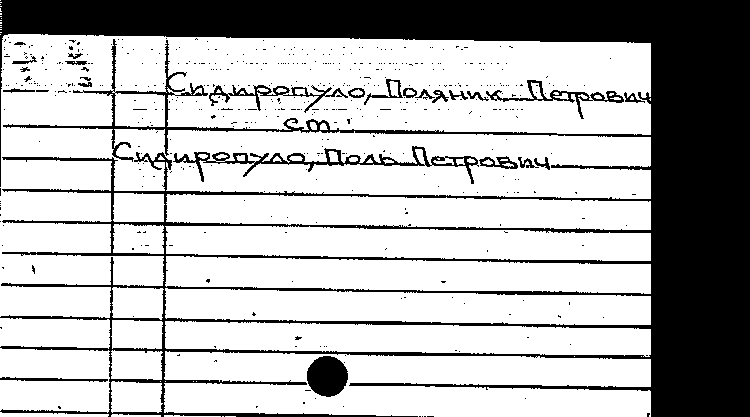 Сидиропуло, Поляник Петрович
ст.
Сидиропуло, Поль Петрович